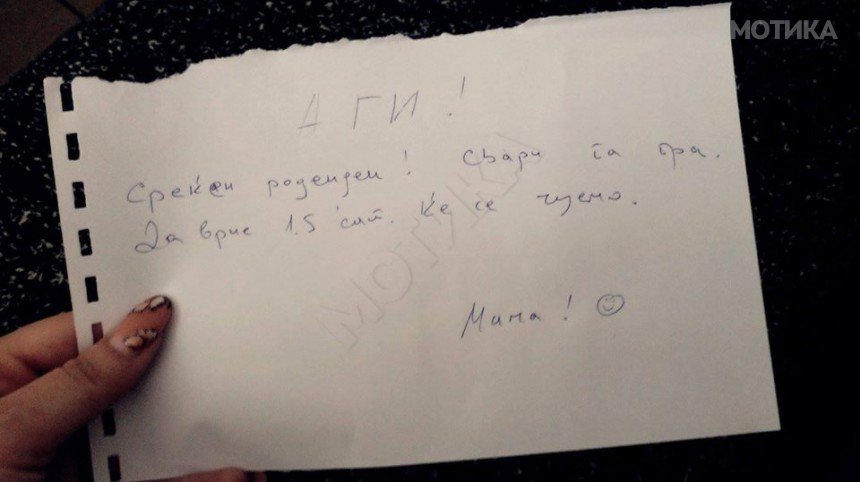 МОТИКА
АГИ!
Среќен роденден! Свари га гра.
Да врие 1.5 сат. Ќе се чуемо.
Мама! ☺
МОТИКА